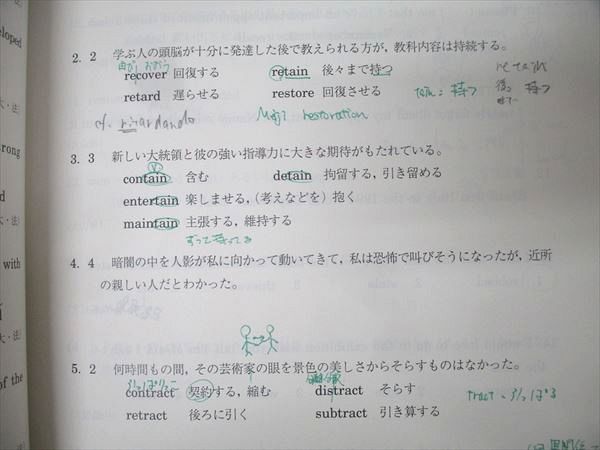 eloped
2. 2 学ぶ人の頭脳が十分に発達した後で教えられる方が，教科内容は持続する。
recover 回復する retain 後々まで持つ
retard 遅らせる restore 回復させる
tain: 持つ
retain
cf. ritardando
Meiji restoration
rong
3. 3 新しい大統領と彼の強い指導力に大きな期待がもたれている。
contain 含む detain 拘留する，引き留める
entertain 楽しませる，（考えなどを）抱く
maintain 主張する，維持する
ずっと持ってる
with
4. 4 暗闇の中を人影が私に向かって動いてきて，私は恐怖で叫びそうになったが，近所
の親しい人だとわかった。
5. 2 何時間もの間，その芸術家の眼を景色の美しさからそらすものはなかった。
of the
contract 契約する，縮む distract そらす
tract: 引っぱる
retract 後ろに引く subtract 引き算する